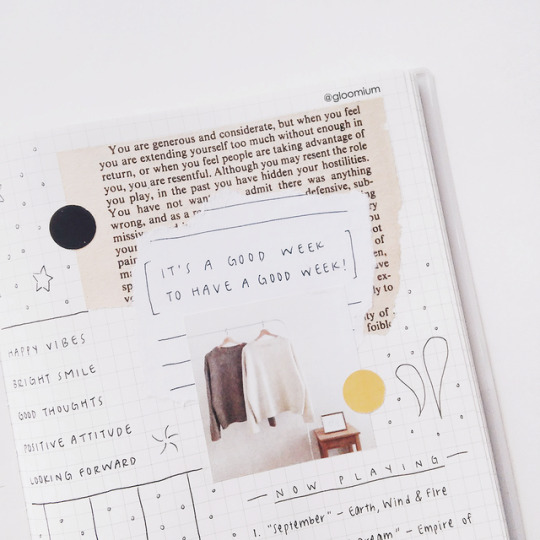 @gloomium
You are generous and considerate, but when you feel
you are extending yourself too much without enough in
return, or when you feel people are taking advantage of
you, you are resentful. Although you may resent the role
you play, in the past you have hidden your hostilities.
You have not admit there was anything
wrong, and as a defensive, sub-
your
IT'S A GOOD WEEK
TO HAVE A GOOD WEEK!
ex-
ly to
ity of
foible
HAPPY VIBES
BRIGHT SMILE
GOOD THOUGHTS
POSITIVE ATTITUDE
LOOKING FORWARD
NOW PLAYING
1. "September" - Earth, Wind & Fire
Empire of